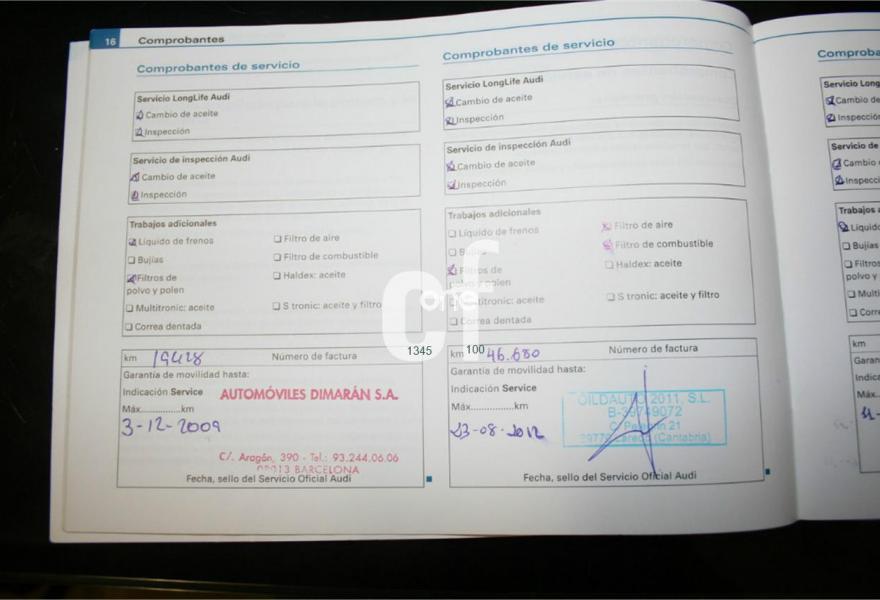 16 Comprobantes
Comprobantes de servicio
Servicio LongLife Audi
Cambio de aceite
Inspección
Servicio de inspección Audi
Cambio de aceite
Inspección
Trabajos adicionales
Líquido de frenos
Filtro de aire
Bujías
Filtro de combustible
Filtros de
polvo y polen
Haldex: aceite
Multitronic: aceite
S tronic: aceite y filtro
Correa dentada
km 19428 Número de factura 1345
Garantía de movilidad hasta:
Indicación Service
AUTOMÓVILES DIMARÁN S.A.
Máx..............km
3-12-2009
C/. Aragón, 390 - Tel.: 93.244.06.06
08013 BARCELONA
Fecha, sello del Servicio Oficial Audi
Comprobantes de servicio
Servicio LongLife Audi
Cambio de aceite
Inspección
Servicio de inspección Audi
Cambio de aceite
Inspección
Trabajos adicionales
Líquido de frenos
Filtro de aire
Bujías
Filtro de combustible
Filtros de
polvo y polen
Haldex: aceite
Multitronic: aceite
S tronic: aceite y filtro
Correa dentada
cf
one
km 100 46.680 Número de factura
Garantía de movilidad hasta:
Indicación Service
Máx..............km
23-08-2012
2011, S.L.
B-39749072
21
Laredo (Cantabria)
Fecha, sello del Servicio Oficial Audi
Comproba
Servicio Long
Cambio de
Inspección
Servicio de
Cambio
Inspecci
Trabajos a
Líquido
Bujías
Filtros
polvo y
Multi
Corre
km
Garan
Indica
Máx.